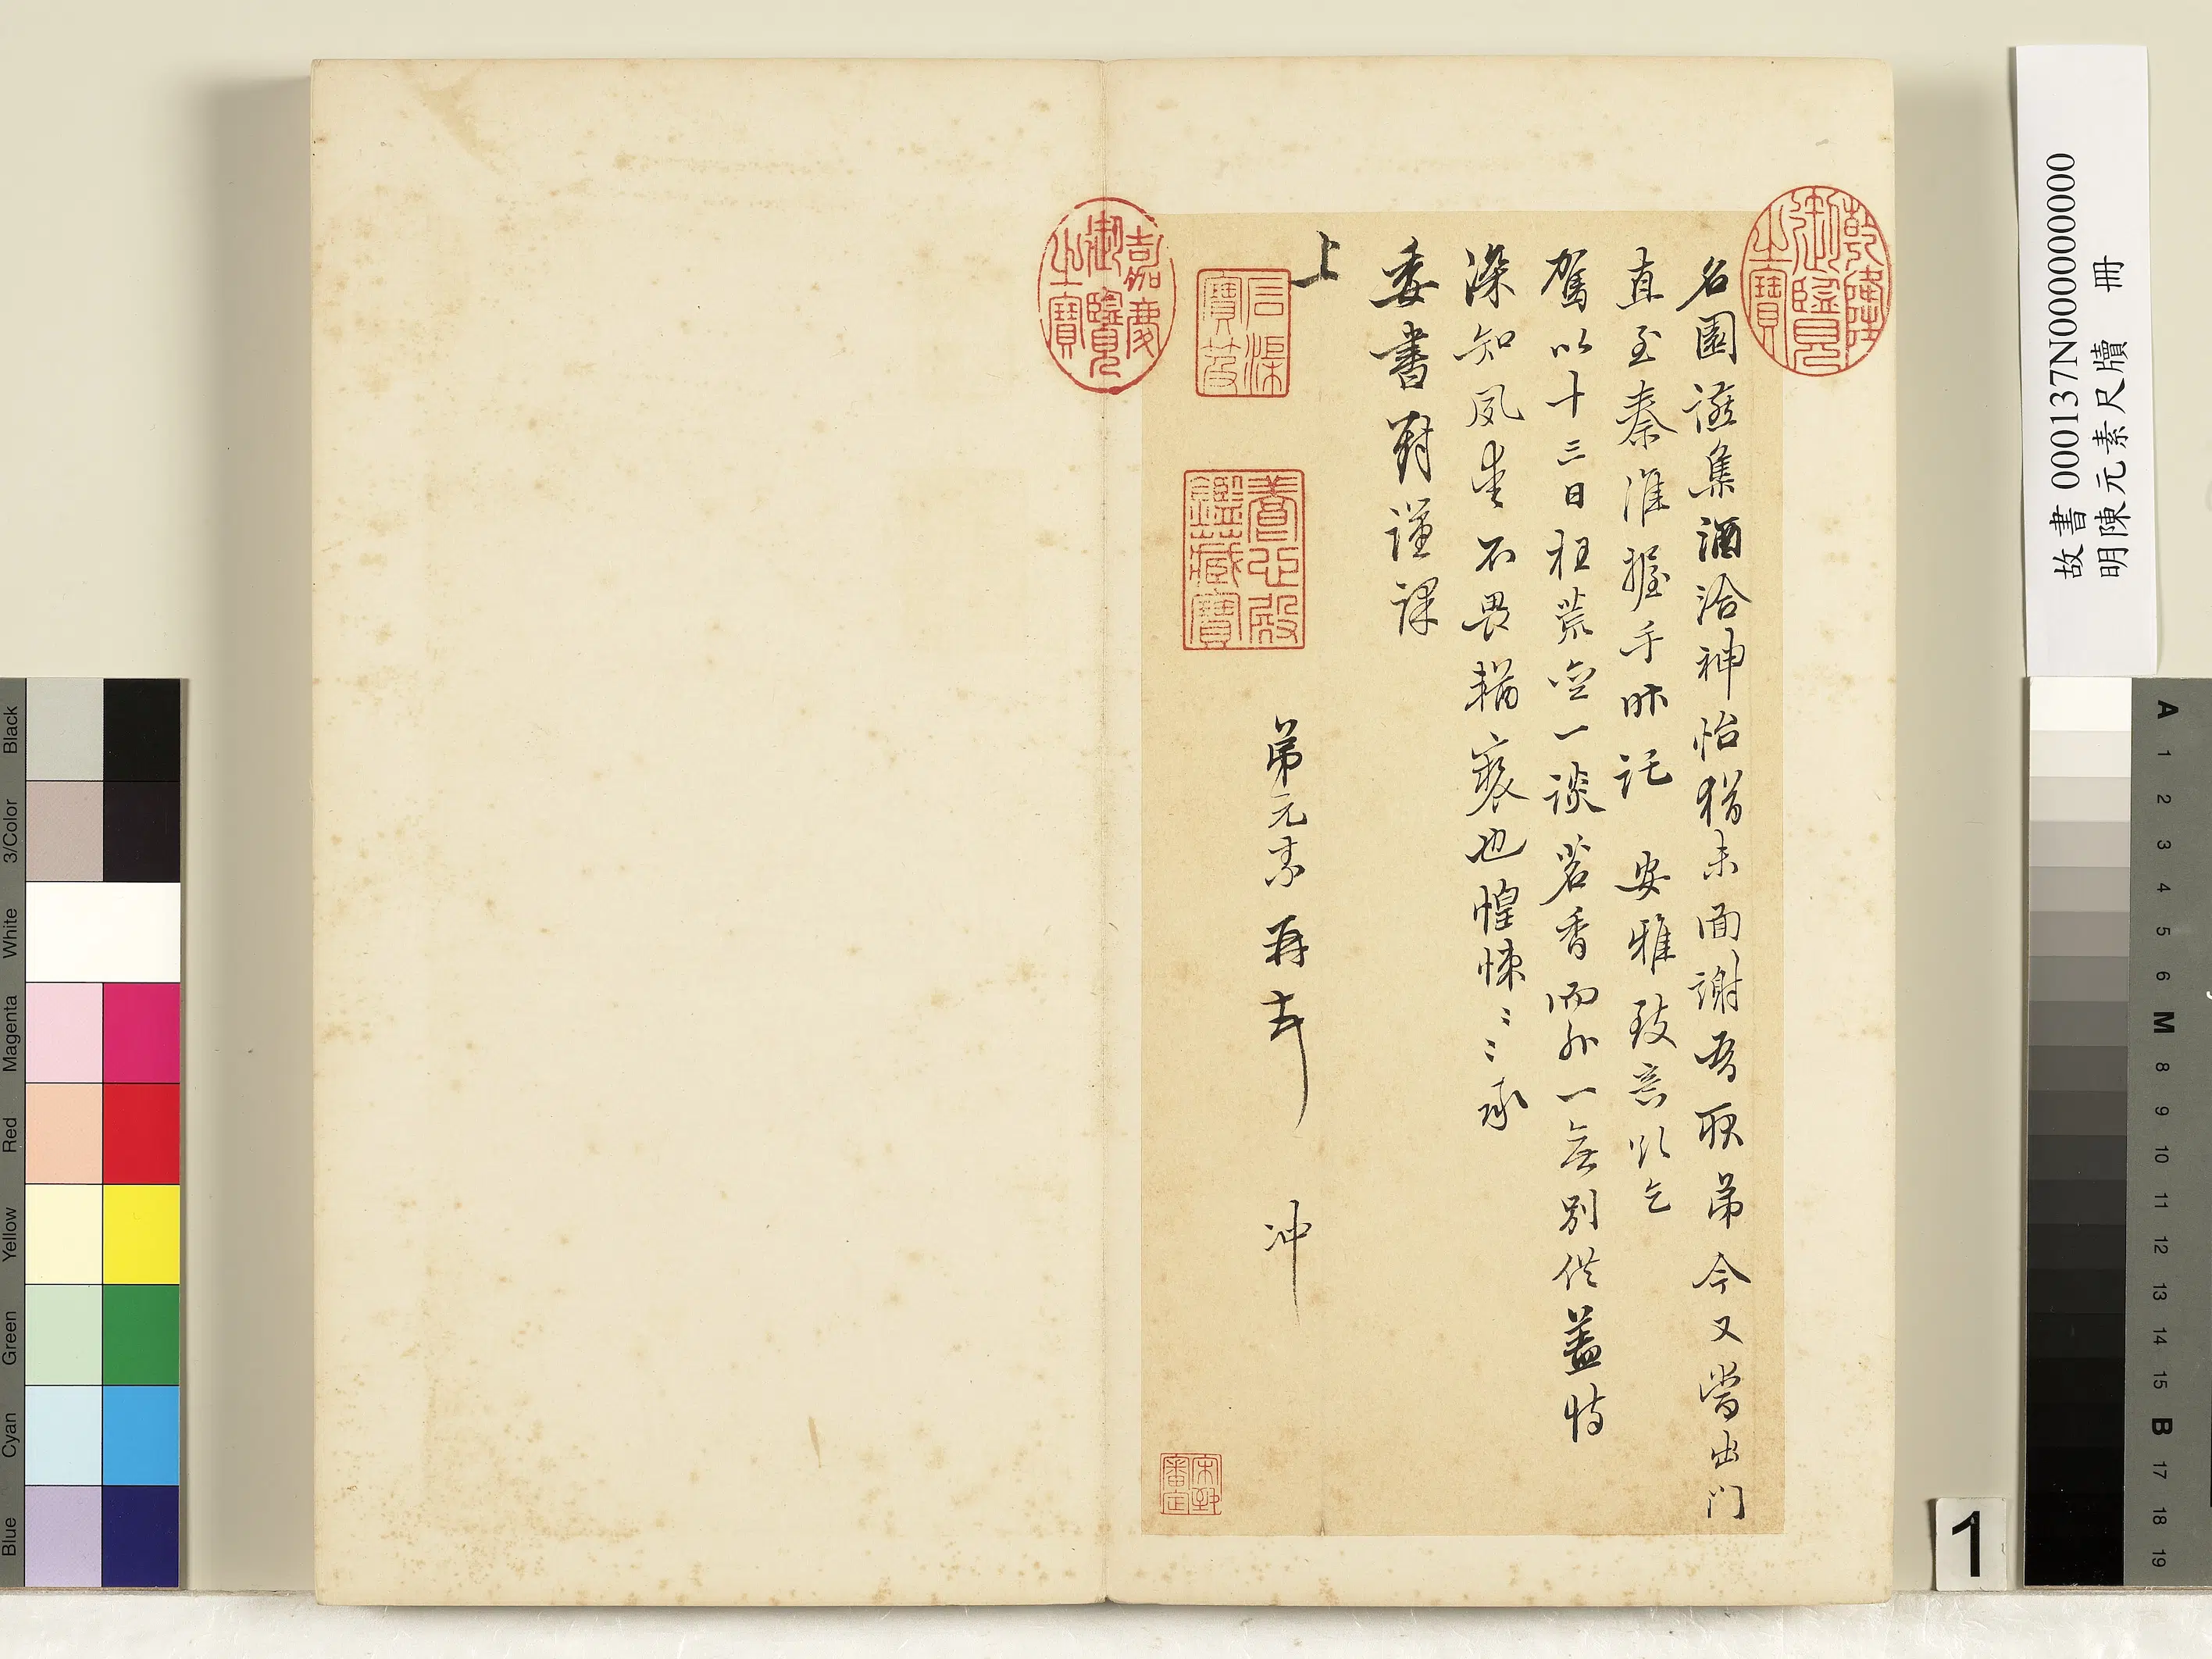 名園讌集酒洽神怡猶未面謝吾耿弟今又當出門
直至秦淮握手昨託 安雅致言欲乞
駕以十三日枉荒齋一談茗香而外一無別供蓋恃
深知夙愛不畏輶褻也惶悚〻〻承
委書對謹課
上
弟元素再頓
沖
乾隆御覽之寶
嘉慶御覽之寶
石渠寶笈
養心殿鑑藏寶
故書 000137N000000000
明陳元素尺牘 冊
1
Black
3/Color
White
Magenta
Red
Yellow
Green
Cyan
Blue
A
1
2
3
4
5
6
M
8
9
10
11
12
13
14
15
B
17
18
19